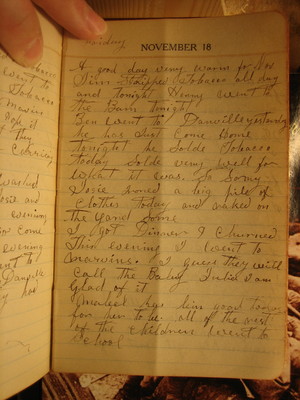 NOVEMBER 18
A good day very warm for Nov
Jim Stripped Tobacco all day
and tonight Henry went to
the Barn tonight
Ben went to Danville yesterday
he has Just Come home
tonight he Solde Tobacco
today Solde very well for
what it was. So Sorry
Josie ironed a big pile of
Clothes today and raked on
the yard some
I got Dinner & Churned
This evening I went to
Marvins. I guess they will
Call the Baby I am
Glad of it
has bin good today
for her to be. all of the rest
of the children went to
School
went to
Tobacco
of they
washed
evening
come
evening
went to
Danville
had